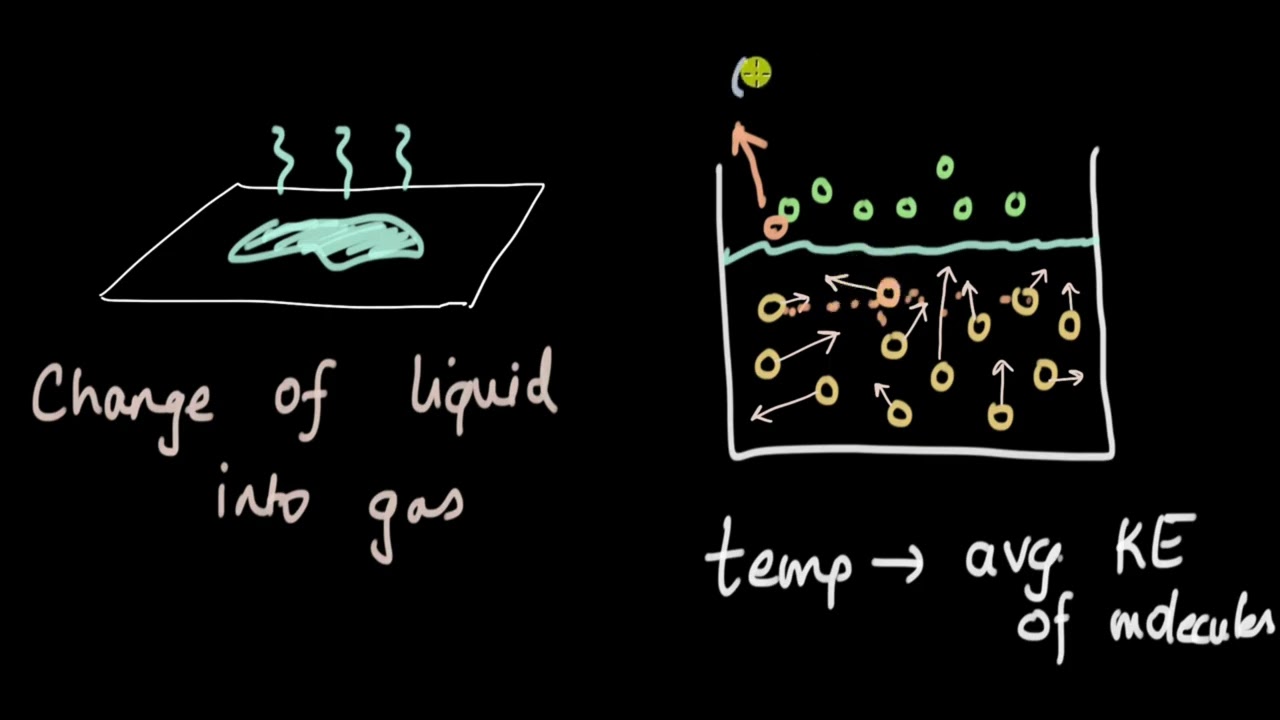 Change of liquid
into gas
temp → avg KE
of molecules